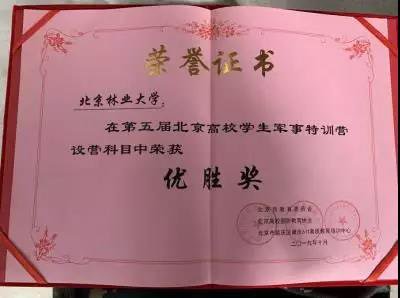 荣誉证书
北京林业大学：
在第五届北京高校学生军事特训营
设营科目中荣获
优胜奖
北京市教育委员会
北京高校国防教育协会
二〇一九年十月